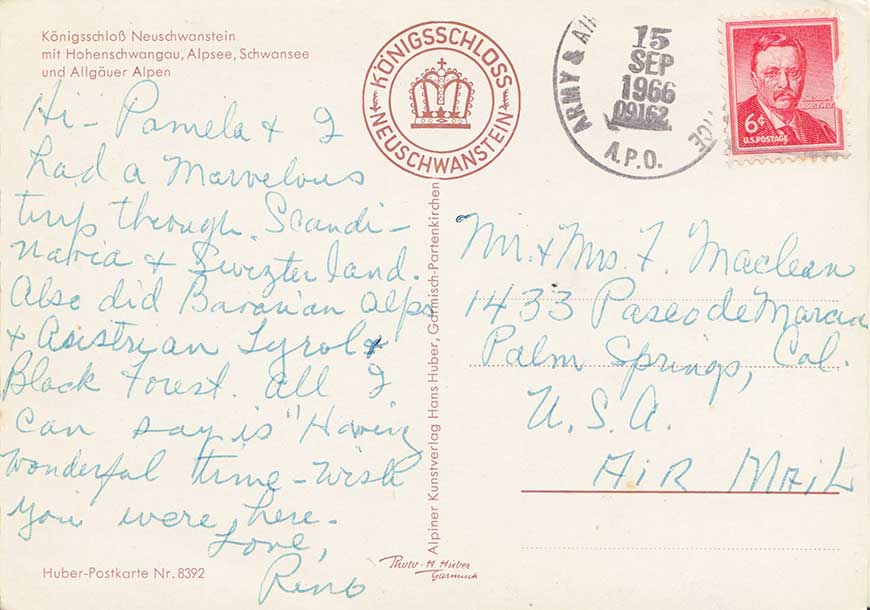 Königsschloß Neuschwanstein
mit Hohenschwangau, Alpsee, Schwansee
und Allgäuer Alpen
Hi - Pamela & I
had a Marvelous
trip through Scandi-
navia & Swizterland.
Also did Bavarian Alps
& Austrian Tyrol &
Black Forest. All I
can say is "Having
wonderful time - wish
you were here.
Love,
Reno
Huber-Postkarte Nr. 8392
KÖNIGSSCHLOSS
NEUSCHWANSTEIN
Alpiner Kunstverlag Hans Huber, Garmisch-Partenkirchen
Photo - H. Huber
Garmisch
ARMY & AIR
15
SEP
1966
09162
A.P.O.
THEODORE
ROOSEVELT
6¢
U.S. POSTAGE
Mr. & Mrs. F. Maclean
1433 Paseo de Marcia
Palm Springs, Cal.
U.S.A.
AIR MAIL